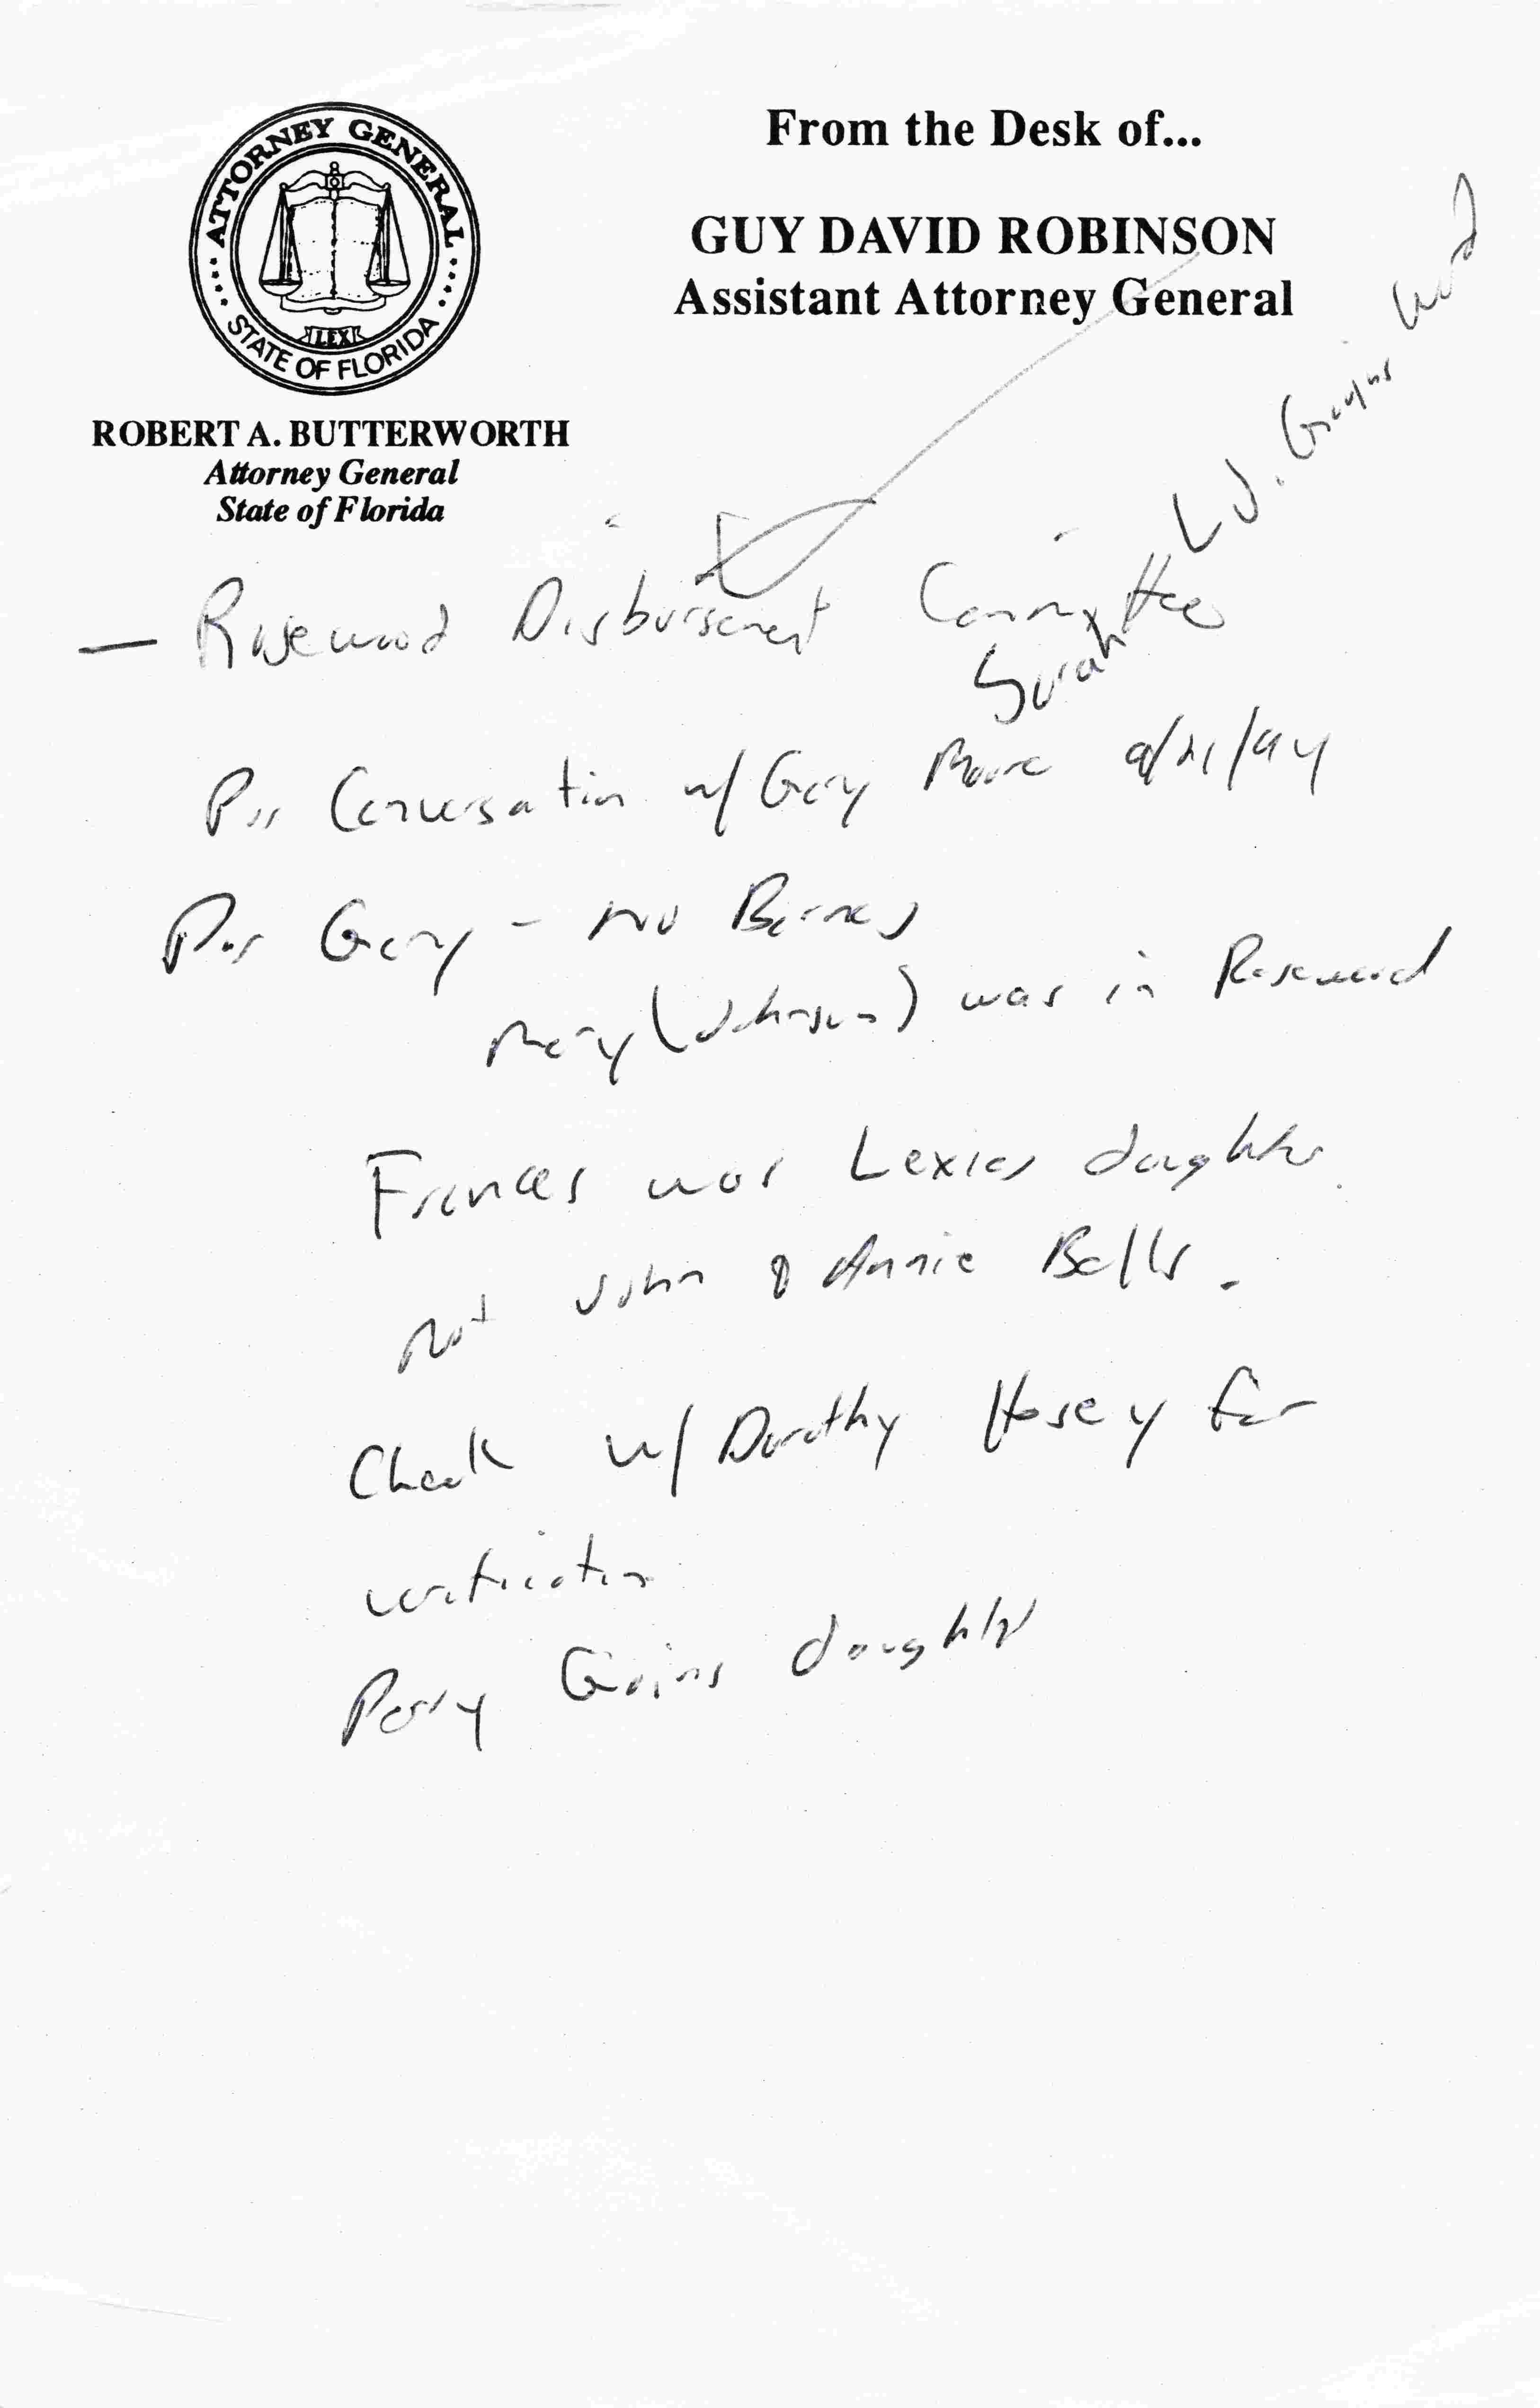 From the Desk of...
GUY DAVID ROBINSON
Assistant Attorney General
ATTORNEY GENERAL
STATE OF FLORIDA
LEX
ROBERT A. BUTTERWORTH
Attorney General
State of Florida
— Rosewood Disbursement Committee
Sarah
Per Conversation w/ Gary Moore
Per Gary - no Barnes
Mary (Johnson) was in Rosewood
Frances was Lexies daughter
not John & Annie Bells.
Check w/ Dorothy Hosey for
verification
Perry Goins daughter